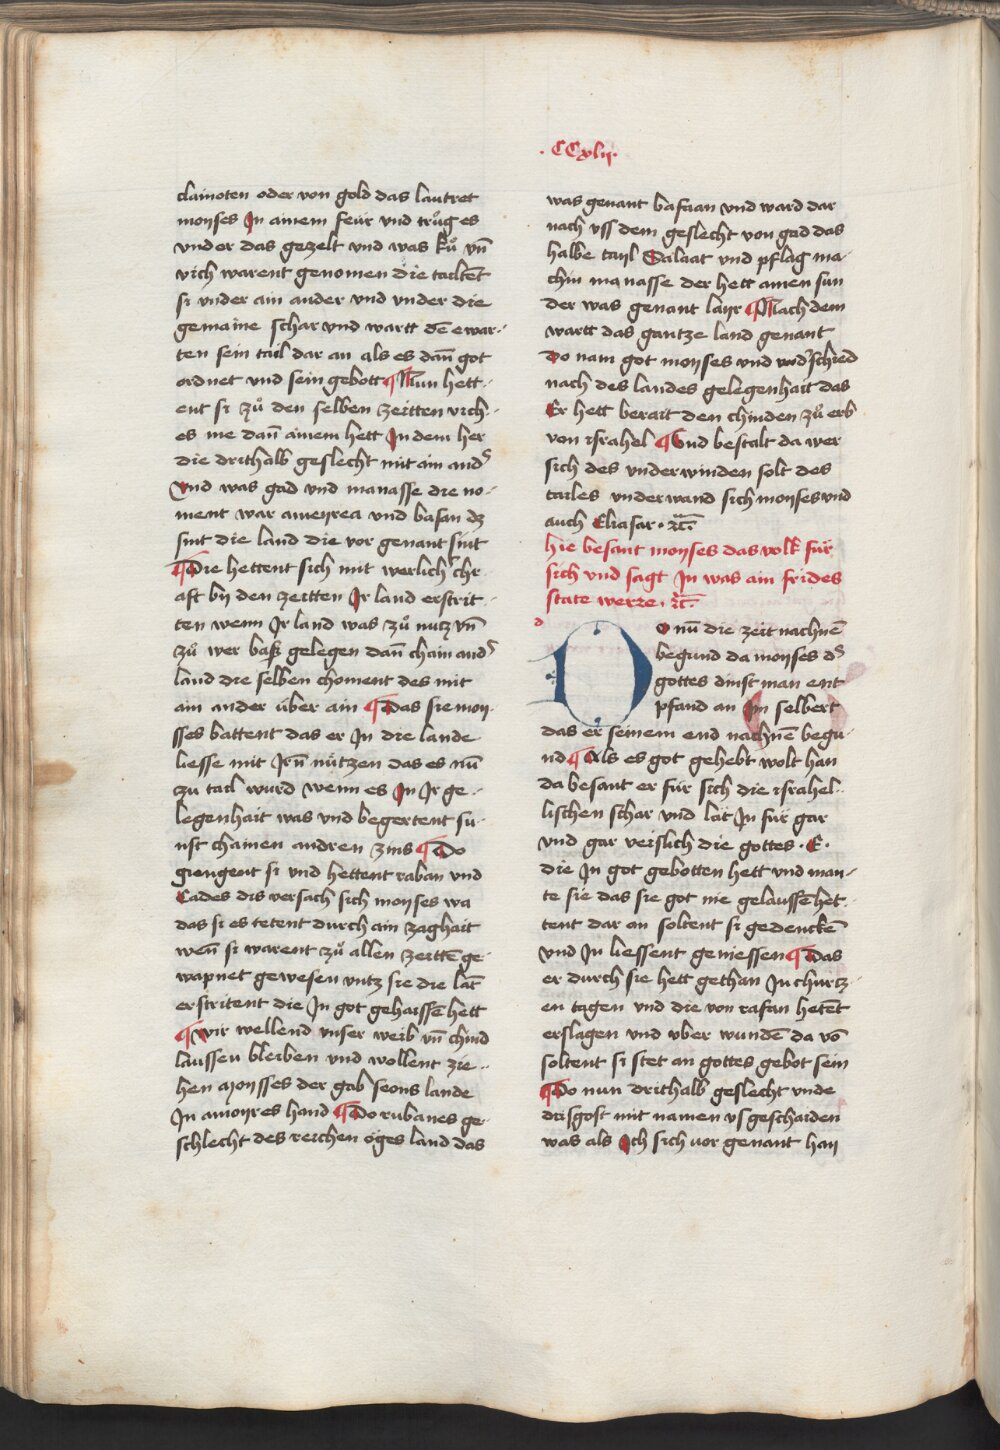 · CCxlij ·
clainoten oder von gold das lautret
moyses Jn ainem feür vnd trůg es
vnder das gezelt vnd was ků vn̄
vich warent genomen die tailtēt
si vnder ain ander vnd vnder die
gemaine schar vnd wartt dē ewar-
ten sein tail dar an als es dan̄ got
ordnet vnd sein gebott ¶ Nun hett-
ent si zů den selben zeitten vich-
es me dan̄ ainem hett Jn dem her
die drithalb geslecht mit ain and͛
Vnd was gad vnd manasse die no-
ment war ameyrea vnd basan dz
sint die land die vor genant sint
¶ Die hettent sich mit werlich͛ chr-
aft bij den zeitten Jr land erstrit-
ten wenn Jr land was zů nutz vn̄
zů wer basß gelegen dan̄ chain and͛
land die selben choment des mit
ain ander über ain ¶ Das sie moy-
sses battent das er Jn die lande
liesse mit Jrn̄ nützen das es nū
zu tail wurd wenn es Jn Jr ge-
legenhait was vnd begertent su-
nst chainen andren zins ¶ Do
giengent si vnd hettent raban vnd
Cades dis versach sich moyses wa
das si es tetent durch ain zaghait
wen̄ si warent zů allen zeittē ge-
wapnet gewesen vntz sie die lāt
erstritent die Jn got gehaissē hett
¶ wir wellend vnser weib vn̄ chind
laussen bleiben vnd wollent zie-
hen moysses der gab seons lande
Jn amoyres hand ¶ Do rubanes ge-
schlecht des reichen oges land das
was genant basaan vnd ward dar
nach vss dem geslecht von gad das
halbe tayl Galaat vnd pflag ma-
chin manasse der hett ainen sun
der was genant layr ¶ Nach dem
wartt das gantze land genant
Do nam got moyses vnd vnd͛schied
nach des landes gelegenhait das
Er hett berait den chinden zů erb
von israhel ¶ Vnd bestalt da wer
sich des vnderwinden solt des
tailes vnderwand sich moyses vnd
auch Eliasar · ꝛc̄.
hie besant moyses das volk für
sich vnd sagt Jn was ain frides
state werre · ꝛc̄.
d
Do nū die zeit nachnē
begund da moyses d͛
gottes dinst man ent
pfand an Jm selbert
das er seinem end nachnē begu-
nd ¶ Als es got gehebt wolt han
da besant er für sich die israhel-
lischen schar vnd lāt Jn für gar
vnd gar veislich die gottes · E ·
die Jn got gebotten hett vnd man-
te sie das sie got nie gelaussē het-
tent dar an soltent si gedenckē
vnd Jn liessent geniessen ¶ Das
er durch sie hett gethan Jn churtz-
en tagen vnd die von rasan hetēt
erslagen vnd vber wundē da vō
soltent si stet an gottes gebot sein
¶ Do nun drithalb geslecht vnde
drisgost mit namen vsgeschaiden
was als Jch sich vor genant han